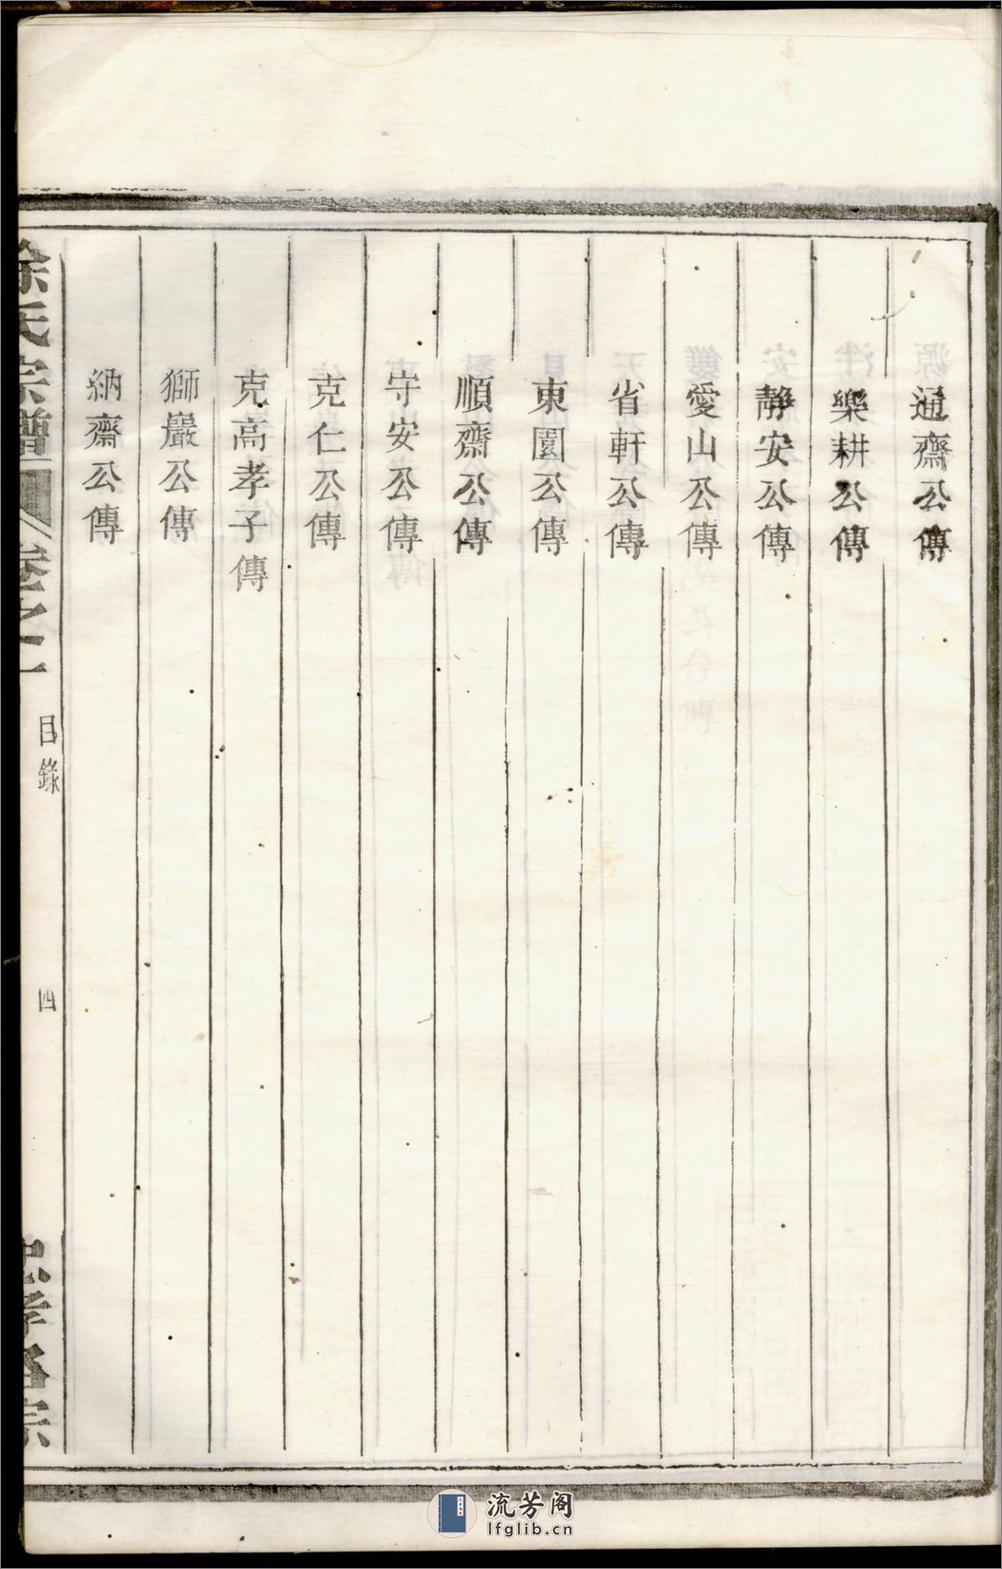 通齋公傳
樂耕公傳
靜安公傳
愛山公傳
省軒公傳
東園公傳
順齋公傳
守安公傳
克仁公傳
克高孝子傳
獅巖公傳
納齋公傳
氏宗譜
卷之一
目錄
四
忠孝
宗
流芳阁
lfglib.cn